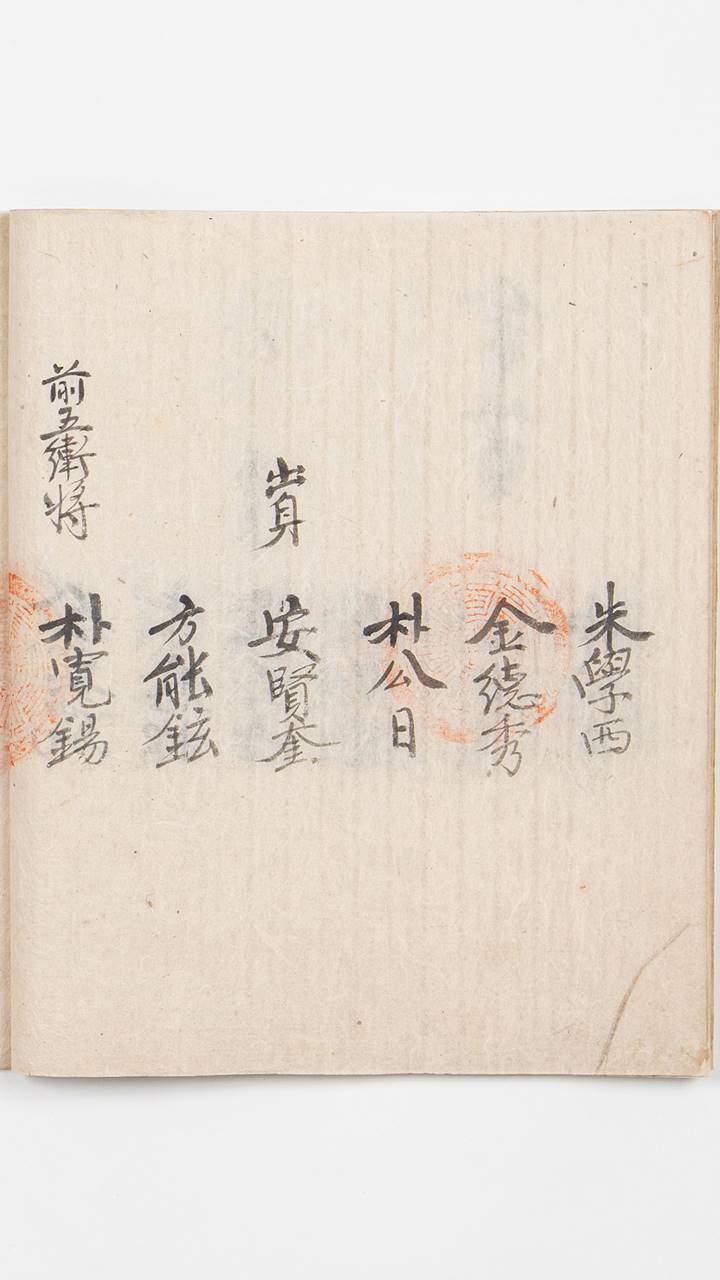 朱學西
金德秀
朴公日
出身 安賢奎
方能鉉
前五衛將 朴寬錫